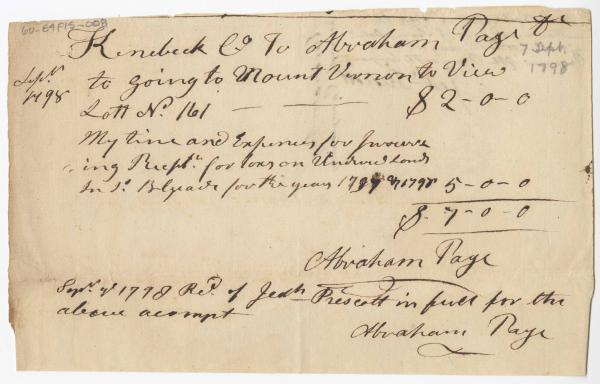 60-E4F15-008
Kenebeck Co To Abraham Page Dr
7 Sept. 1798
Sept. 1798
to going to Mount Vernon to View
Lott No. 161 — — $ 2-0-0
My time and Expences for
ing Recpts. for taxes on Lands
In Sd. Belgrade for the years 1797 & 1798 5-0-0
$ 7-0-0
Abraham Page
Sepr. 7 1798 Recd. of Jedh Prescott in full for the
above acompt
Abraham Page